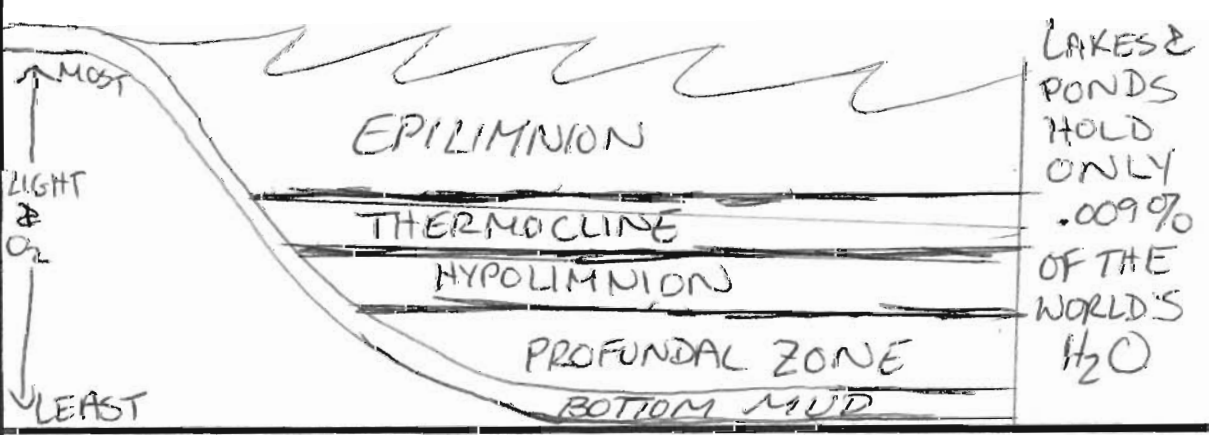 MOST
LIGHT
&
O2
LEAST
EPILIMNION
THERMOCLINE
HYPOLIMNION
PROFUNDAL ZONE
BOTTOM MUD
LAKES &
PONDS
HOLD
ONLY
.009%
OF THE
WORLD'S
H2O